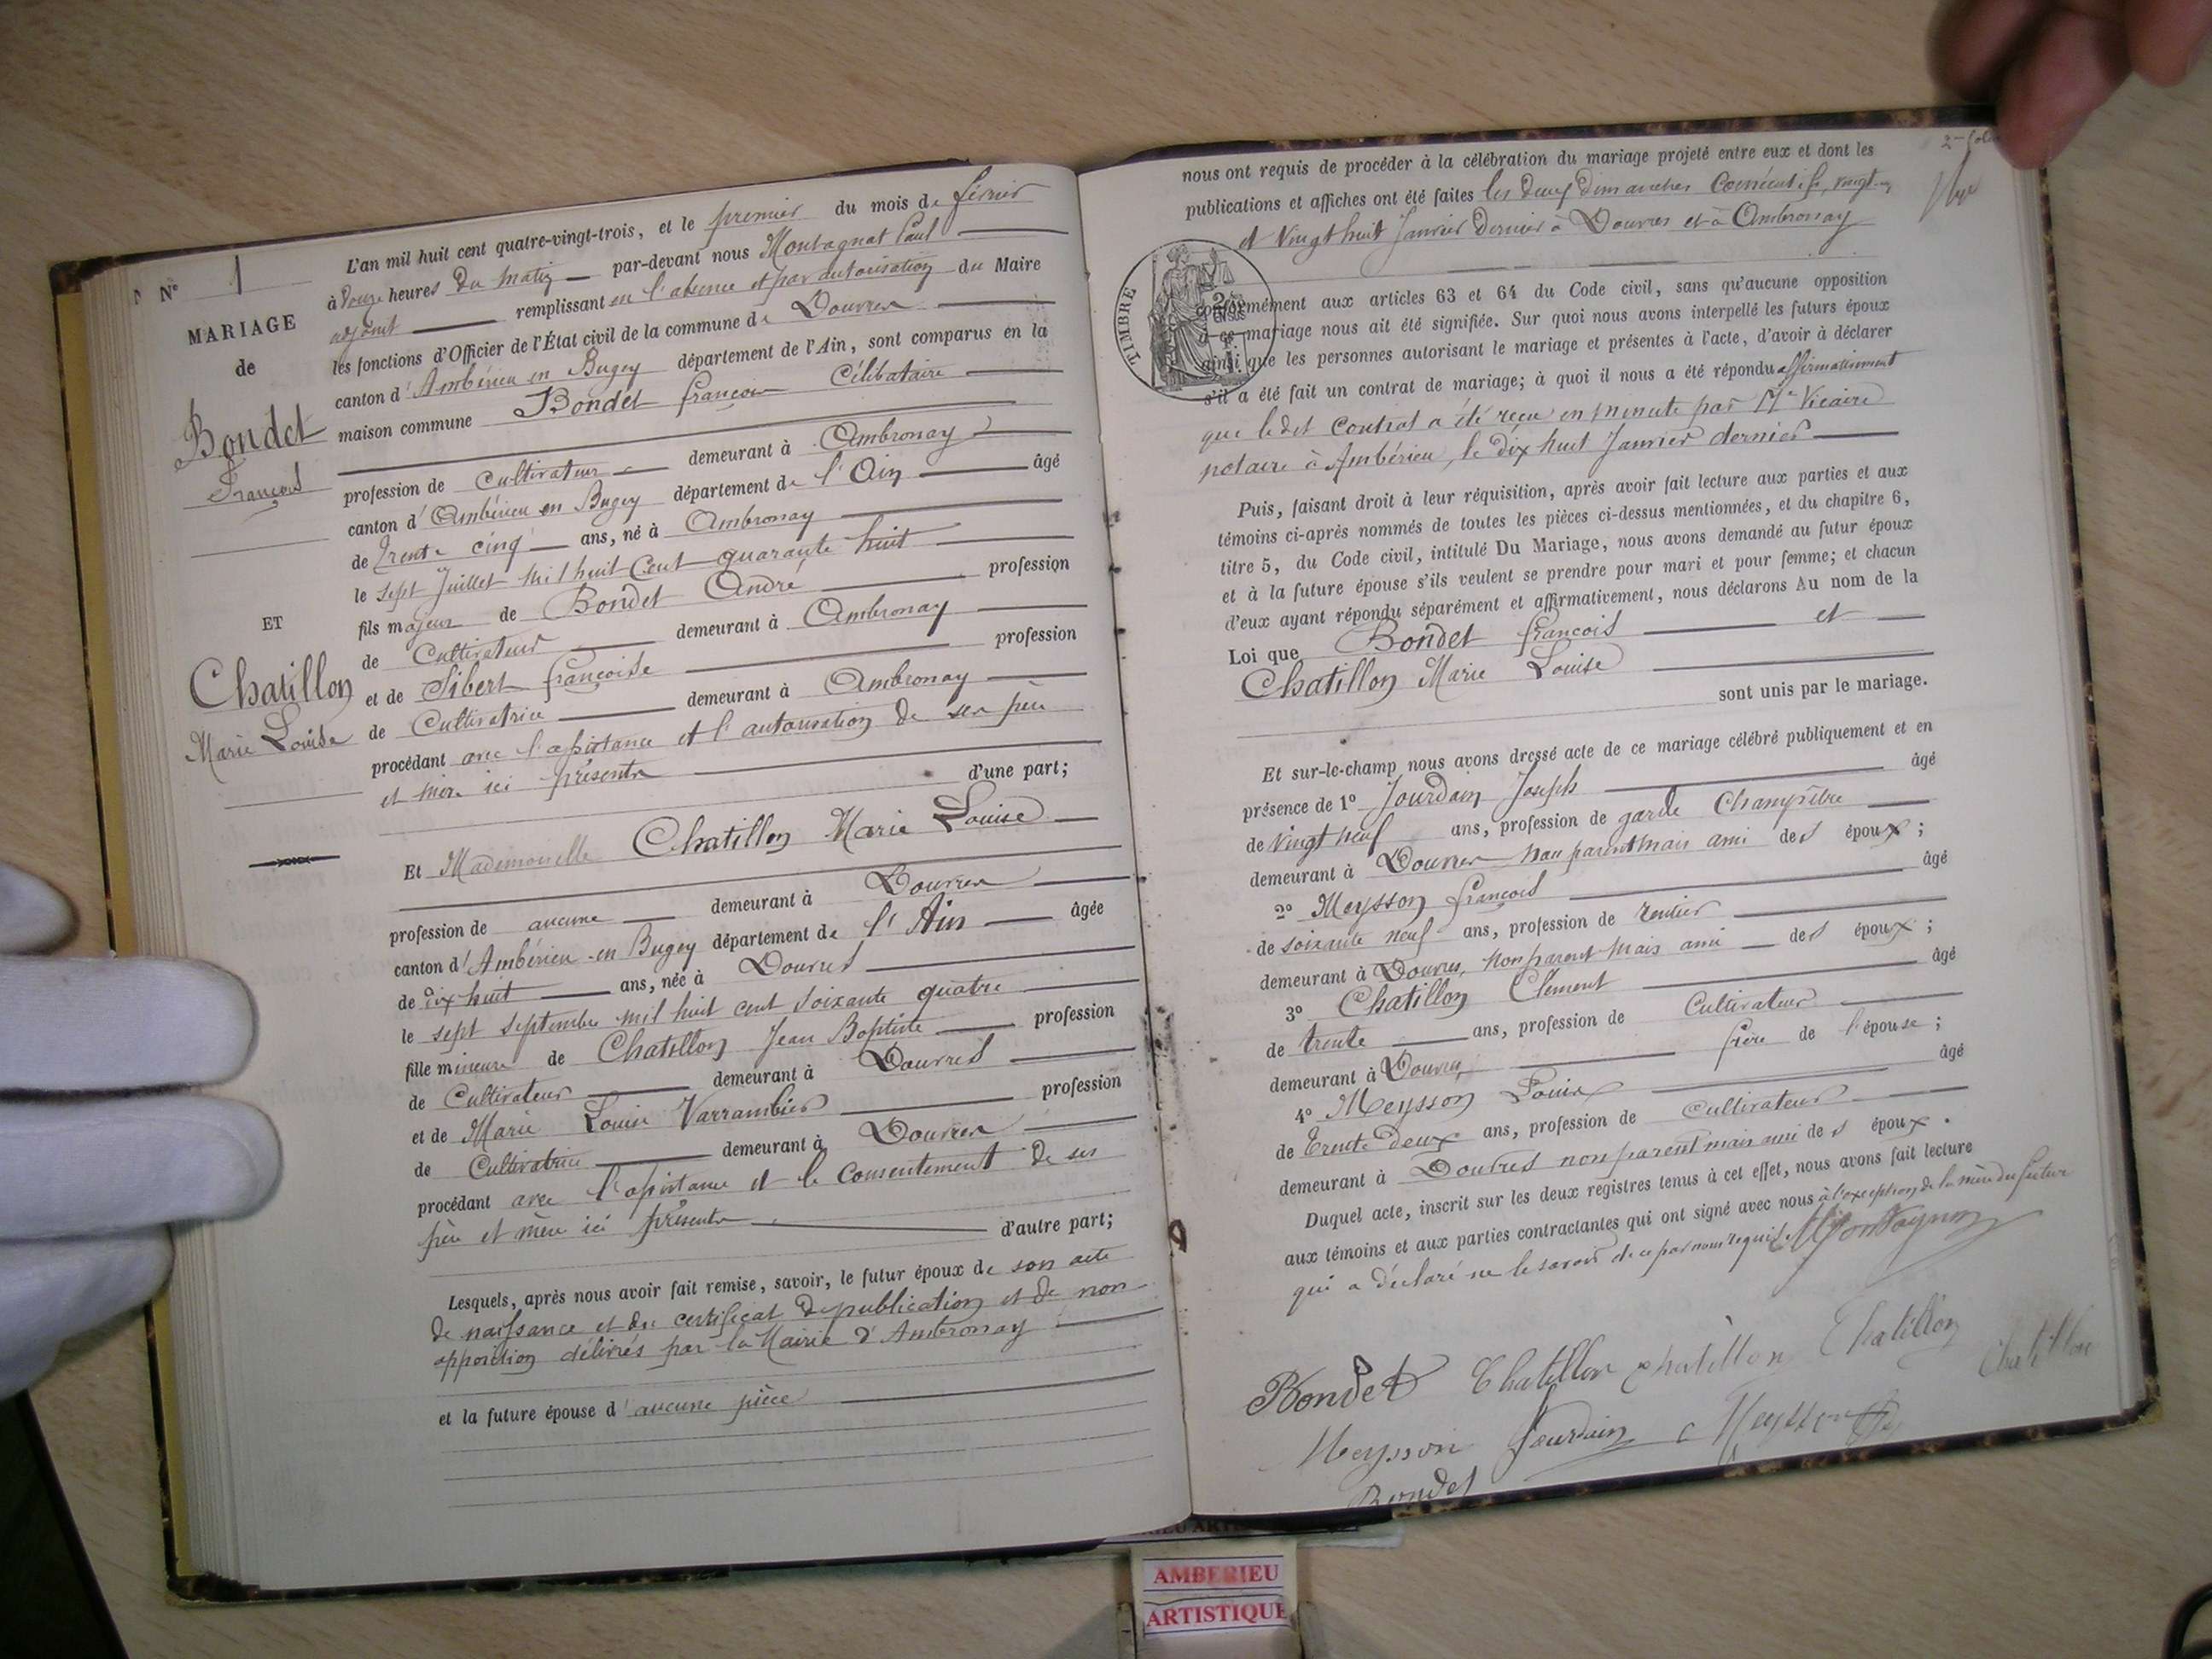 N° 1
MARIAGE
de
Bondet
François
ET
Chatillon
Marie Louise
L'an mil huit cent quatre-vingt-trois, et le premier du mois de février
à Douze heures du matin par-devant nous Montagnat Paul
adjoint remplissant en l'absence et par autorisation du Maire
les fonctions d'Officier de l'État civil de la commune de Douvres
canton d'Ambérieu en Bugey département de l'Ain, sont comparus en la
maison commune Bondet françois Célibataire
profession de Cultivateur demeurant à Ambronay
canton d'Ambérieu en Bugey département de l'Ain âgé
de trente cinq ans, né à Ambronay
le sept Juillet mil huit Cent quarante huit
fils majeur de Bondet André profession
de Cultivateur demeurant à Ambronay
et de Sibert françoise profession
de Cultivatrice demeurant à Ambronay
procédant avec l'assistance et l'autorisation de ses père
et mère ici présents d'une part;
Et Mademoiselle Chatillon Marie Louise
profession de aucune demeurant à Douvres
canton d'Ambérieu-en Bugey département de l'Ain âgée
de dix huit ans, née à Douvres
le sept septembre mil huit cent soixante quatre
fille mineure de Chatillon Jean Baptiste profession
de Cultivateur demeurant à Douvres
et de Marie Louise Varrambier profession
de Cultivatrice demeurant à Douvres
procédant avec l'assistance et le consentement de ses
père et mère ici présents d'autre part;
Lesquels, après nous avoir fait remise, savoir, le futur époux de son acte
de naissance et du certificat de publication et de non
opposition délivrés par la Mairie d'Ambronay
et la future épouse d'aucune pièce
nous ont requis de procéder à la célébration du mariage projeté entre eux et dont les
publications et affiches ont été faites les deux dimanches consécutifs, vingt-un
et vingt huit Janvier dernier à Douvres et à Ambronay
TIMBRE
conformément aux articles 63 et 64 du Code civil, sans qu'aucune opposition
à ce mariage nous ait été signifiée. Sur quoi nous avons interpellé les futurs époux
ainsi que les personnes autorisant le mariage et présentes à l'acte, d'avoir à déclarer
s'il a été fait un contrat de mariage; à quoi il nous a été répondu affirmativement
que ledit contrat a été reçu en minute par Me Vicaire
notaire à Ambérieu, le dix huit Janvier dernier
Puis, faisant droit à leur réquisition, après avoir fait lecture aux parties et aux
témoins ci-après nommés de toutes les pièces ci-dessus mentionnées, et du chapitre 6,
titre 5, du Code civil, intitulé Du Mariage, nous avons demandé au futur époux
et à la future épouse s'ils veulent se prendre pour mari et pour femme; et chacun
d'eux ayant répondu séparément et affirmativement, nous déclarons Au nom de la
Loi que Bondet françois et
Chatillon Marie Louise
sont unis par le mariage.
Et sur-le-champ nous avons dressé acte de ce mariage célébré publiquement et en
présence de 1° Jourdain Joseph âgé
de vingt neuf ans, profession de garde Champêtre
demeurant à Douvres non parent mais ami des époux;
2° Meysson françois âgé
de soixante neuf ans, profession de rentier
demeurant à Douvres, non parent mais ami des époux;
3° Chatillon Clément âgé
de trente ans, profession de Cultivateur
demeurant à Douvres frère de l'épouse;
4° Meysson Louis âgé
de trente deux ans, profession de cultivateur
demeurant à Douvres non parent mais ami des époux.
Duquel acte, inscrit sur les deux registres tenus à cet effet, nous avons fait lecture
aux témoins et aux parties contractantes qui ont signé avec nous à l'exception de la mère du futur
qui a déclaré ne le savoir de ce par nous requis
Bondet Chatillon chatillon Chatillon Chatillon
Meysson Jourdain Meysson
Bondet
AMBERIEU
ARTISTIQUE